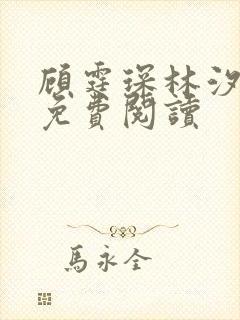 顾霆琛林汐
免費閱讀
馬永全